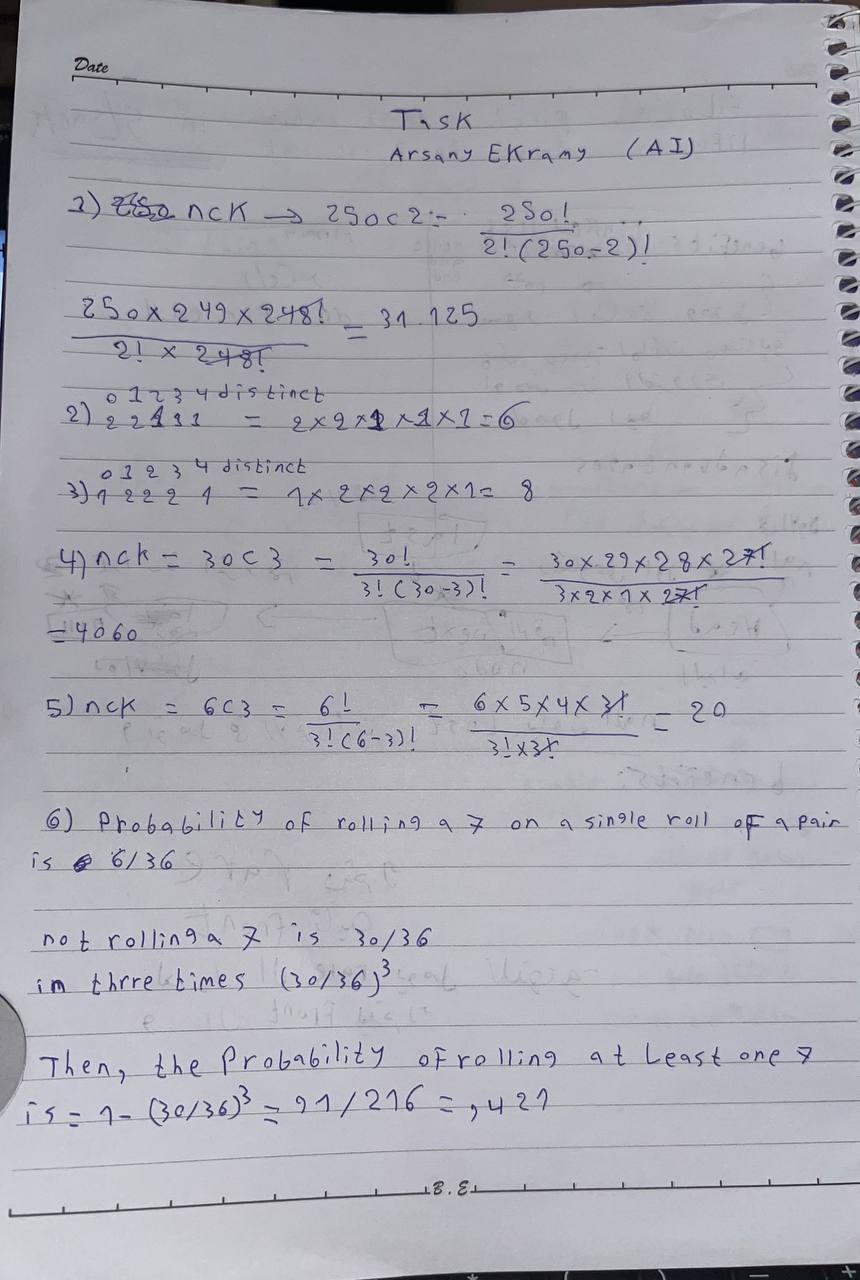 Date
Task
Arsany EKramy (AI)
1) nCK → 250C2 = 250! / 2! (250-2)!
250 x 249 x 248! / 2! x 248! = 31.125
0 1 2 3 4 distinct
2) 2 2 1 1 1 = 2x2x1x1x1=6
0 1 2 3 4 distinct
3) 1 2 2 2 1 = 1x2x2x2x1= 8
4) nck = 30C3 = 30! / 3! (30-3)! = 30x29x28x27! / 3x2x1x27!
=4060
5) nCK = 6C3 = 6! / 3! (6-3)! = 6x5x4x3! / 3!x3! = 20
6) Probability of rolling a 7 on a single roll of a pair
is 6/36
not rolling a 7 is 30/36
in thrre times (30/36)³
Then, the Probability of rolling at Least one 7
is = 1-(30/36)³ = 91/216 = ,421
B.E